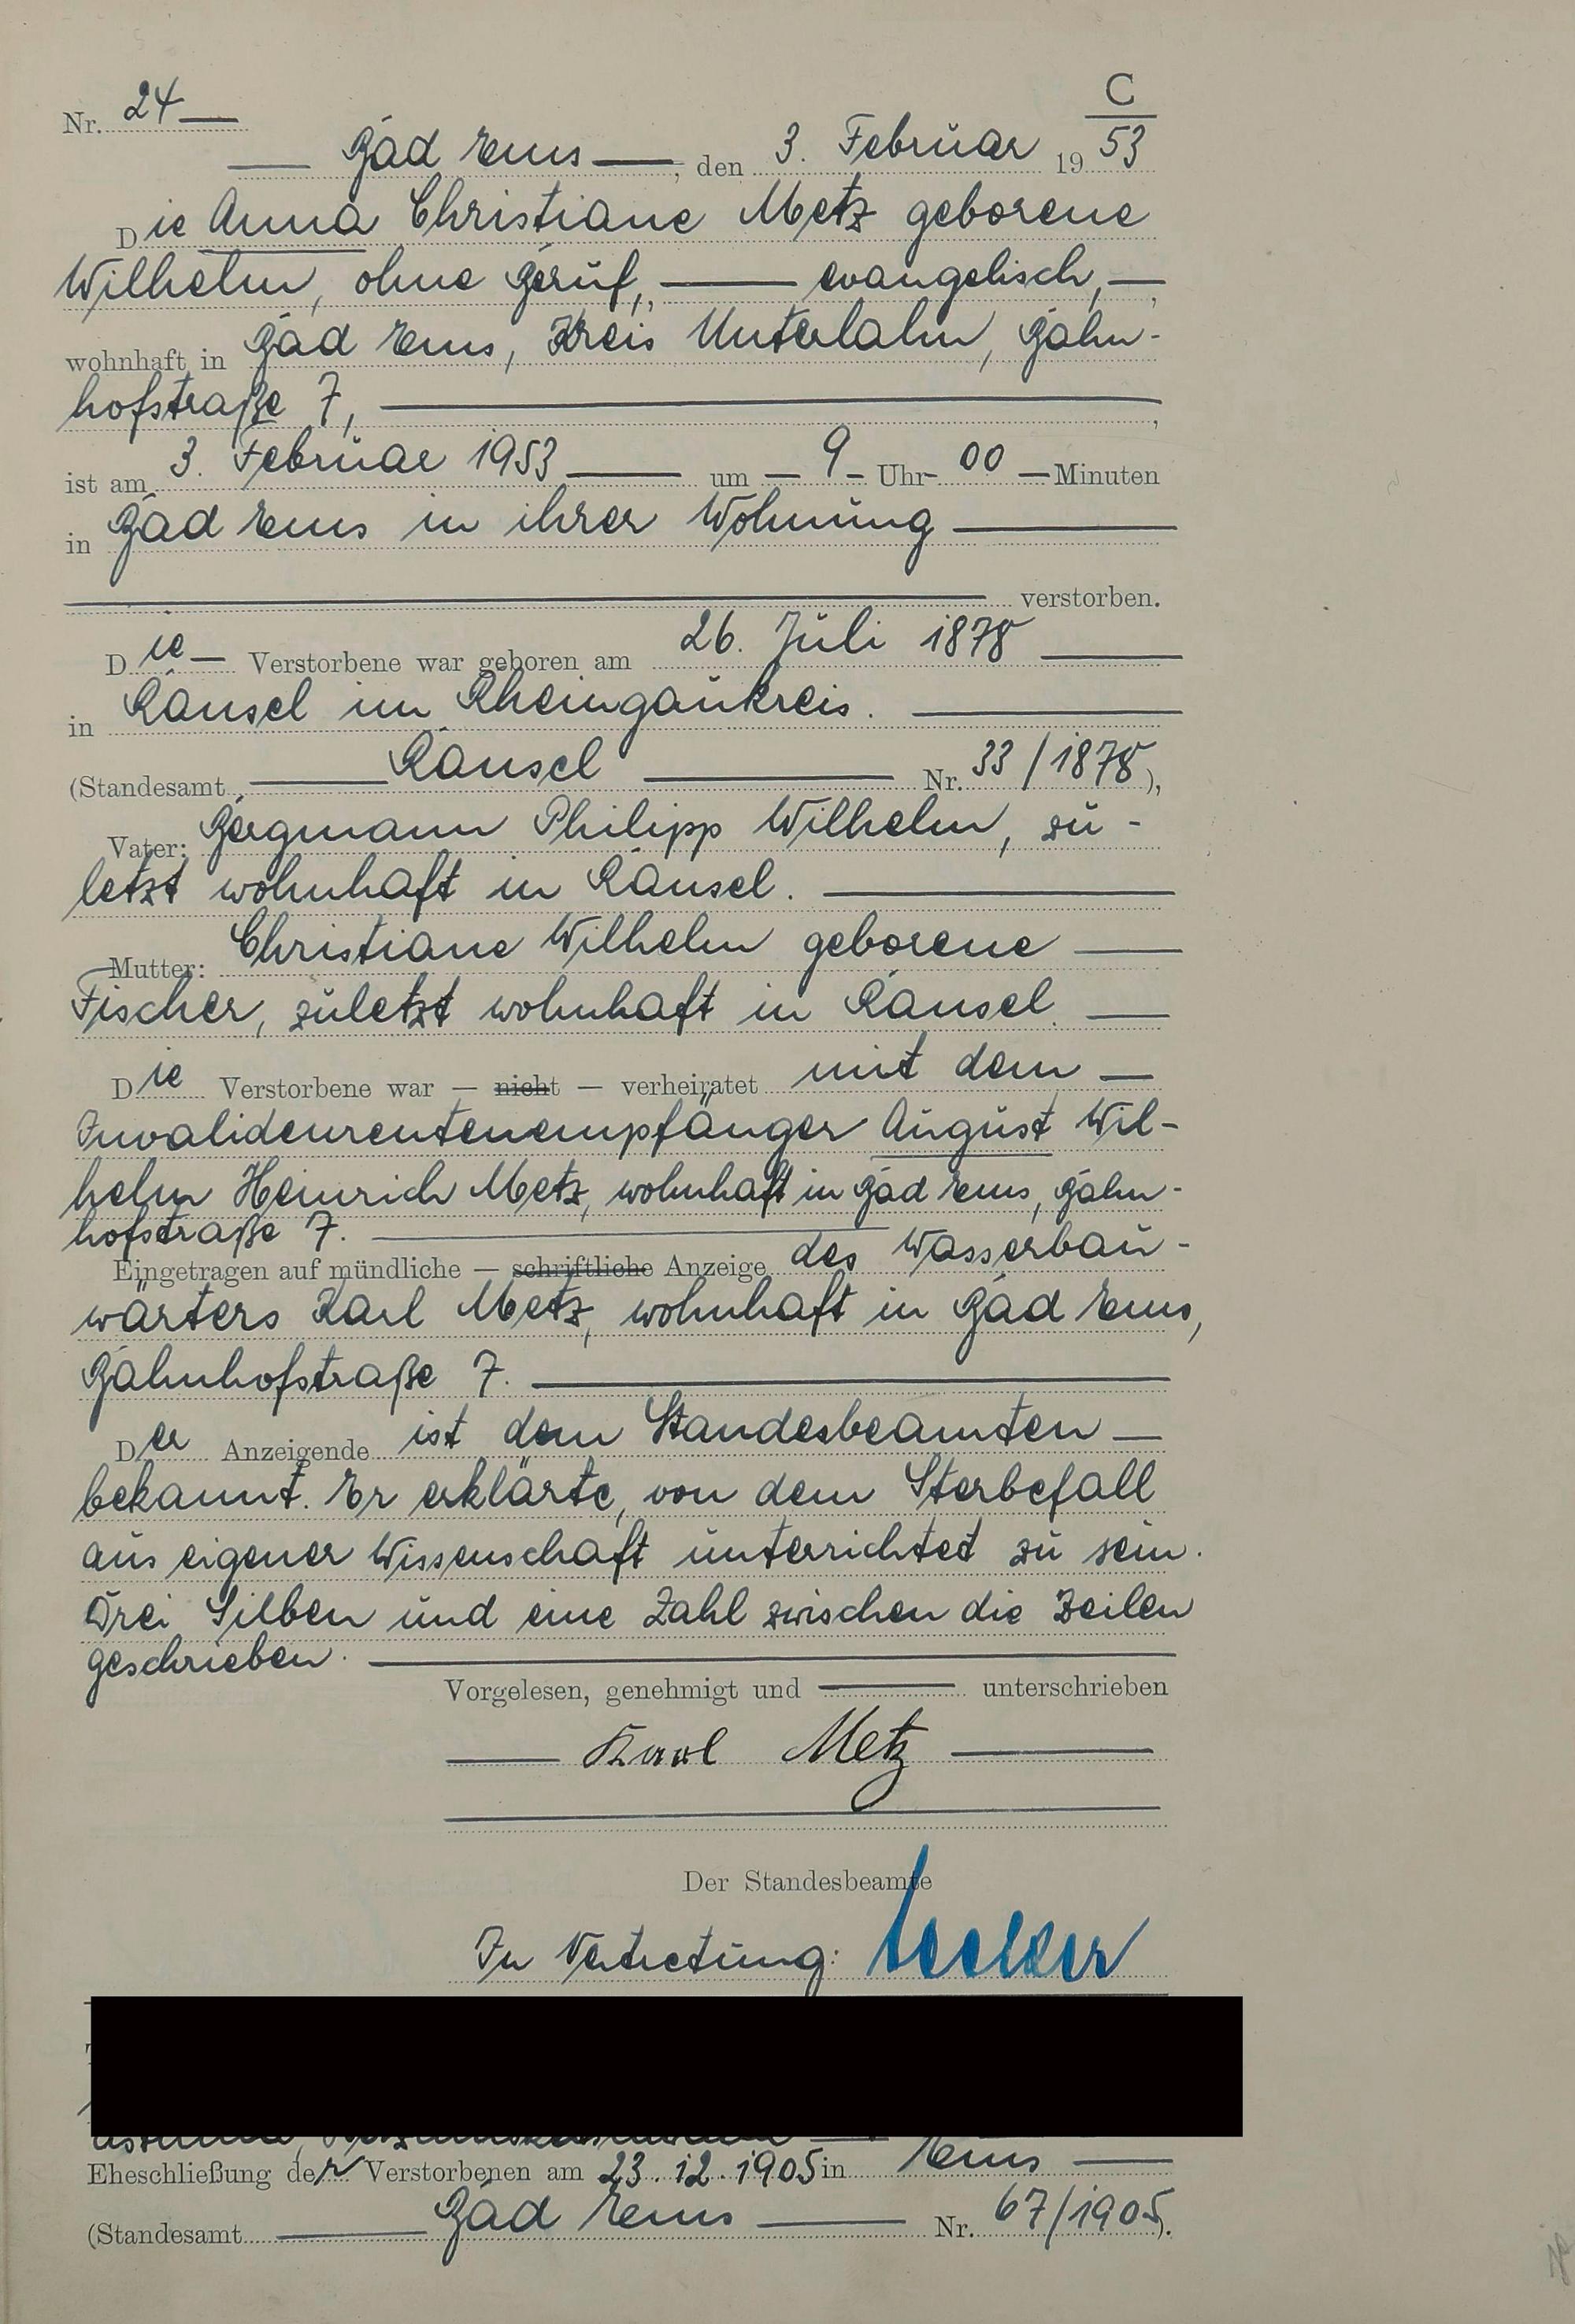 C
Nr. 24
Bad Ems, den 3. Februar 1953
Die Anna Christiane Metz geborene
Wilhelm, ohne Beruf, evangelisch,
wohnhaft in Bad Ems, Kreis Unterlahn, Bahn-
hofstraße 7,
ist am 3. Februar 1953 um 9 Uhr 00 Minuten
in Bad Ems in ihrer Wohnung
verstorben.
Die Verstorbene war geboren am 26. Juli 1878
in Ransel im Rheingaukreis.
(Standesamt Ransel Nr. 33/1878),
Vater: Bergmann Philipp Wilhelm, zu-
letzt wohnhaft in Ransel.
Mutter: Christiane Wilhelm geborene
Fischer, zuletzt wohnhaft in Ransel.
Die Verstorbene war — nicht — verheiratet mit dem
Invalidenrentenempfänger August Wil-
helm Heinrich Metz, wohnhaft in Bad Ems, Bahn-
hofstraße 7.
Eingetragen auf mündliche — schriftliche Anzeige des Wasserbau-
wärters Karl Metz, wohnhaft in Bad Ems,
Bahnhofstraße 7.
Der Anzeigende ist dem Standesbeamten
bekannt. Er erklärte, von dem Sterbefall
aus eigener Wissenschaft unterrichtet zu sein.
Drei Silben und eine Zahl zwischen die Zeilen
geschrieben.
Vorgelesen, genehmigt und unterschrieben
Karl Metz
Der Standesbeamte
In Vertretung:
Eheschließung der Verstorbenen am 23.12.1905 in Ems
(Standesamt Bad Ems Nr. 67/1905).